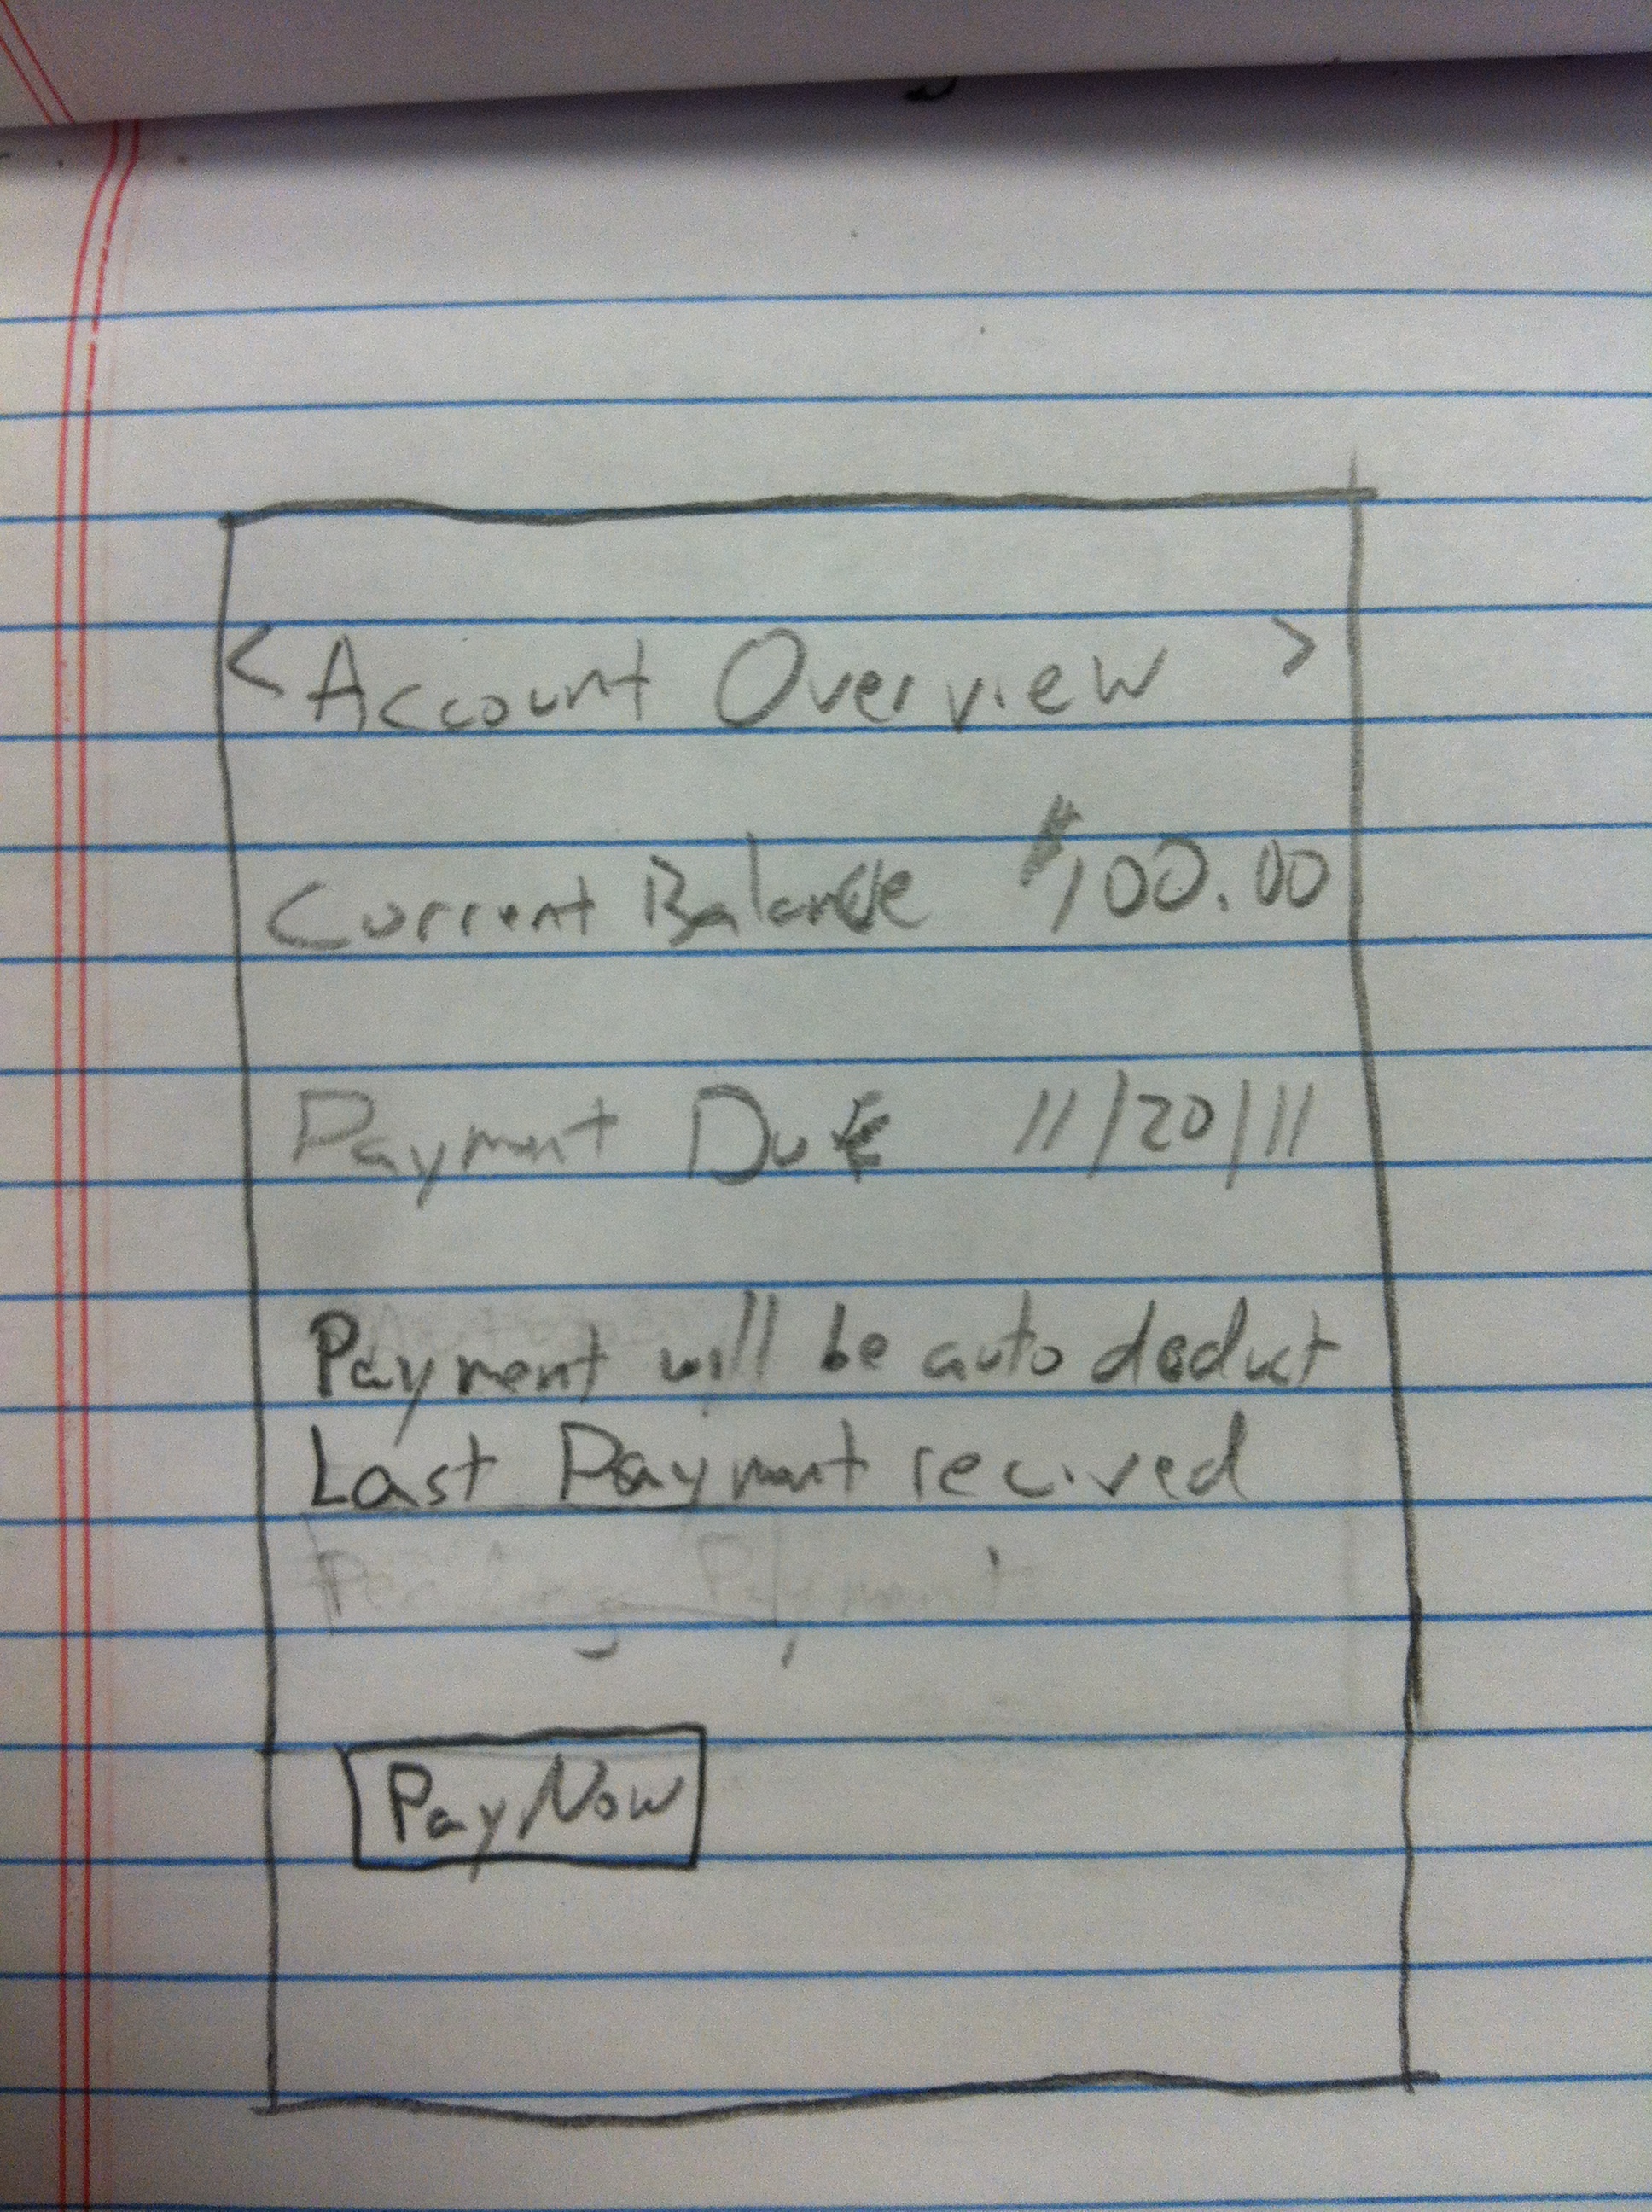 < Account Overview >
Current Balance $100.00
Payment Due 11/20/11
Payment will be auto deduct
Last Payment recived
Payment
Pay Now